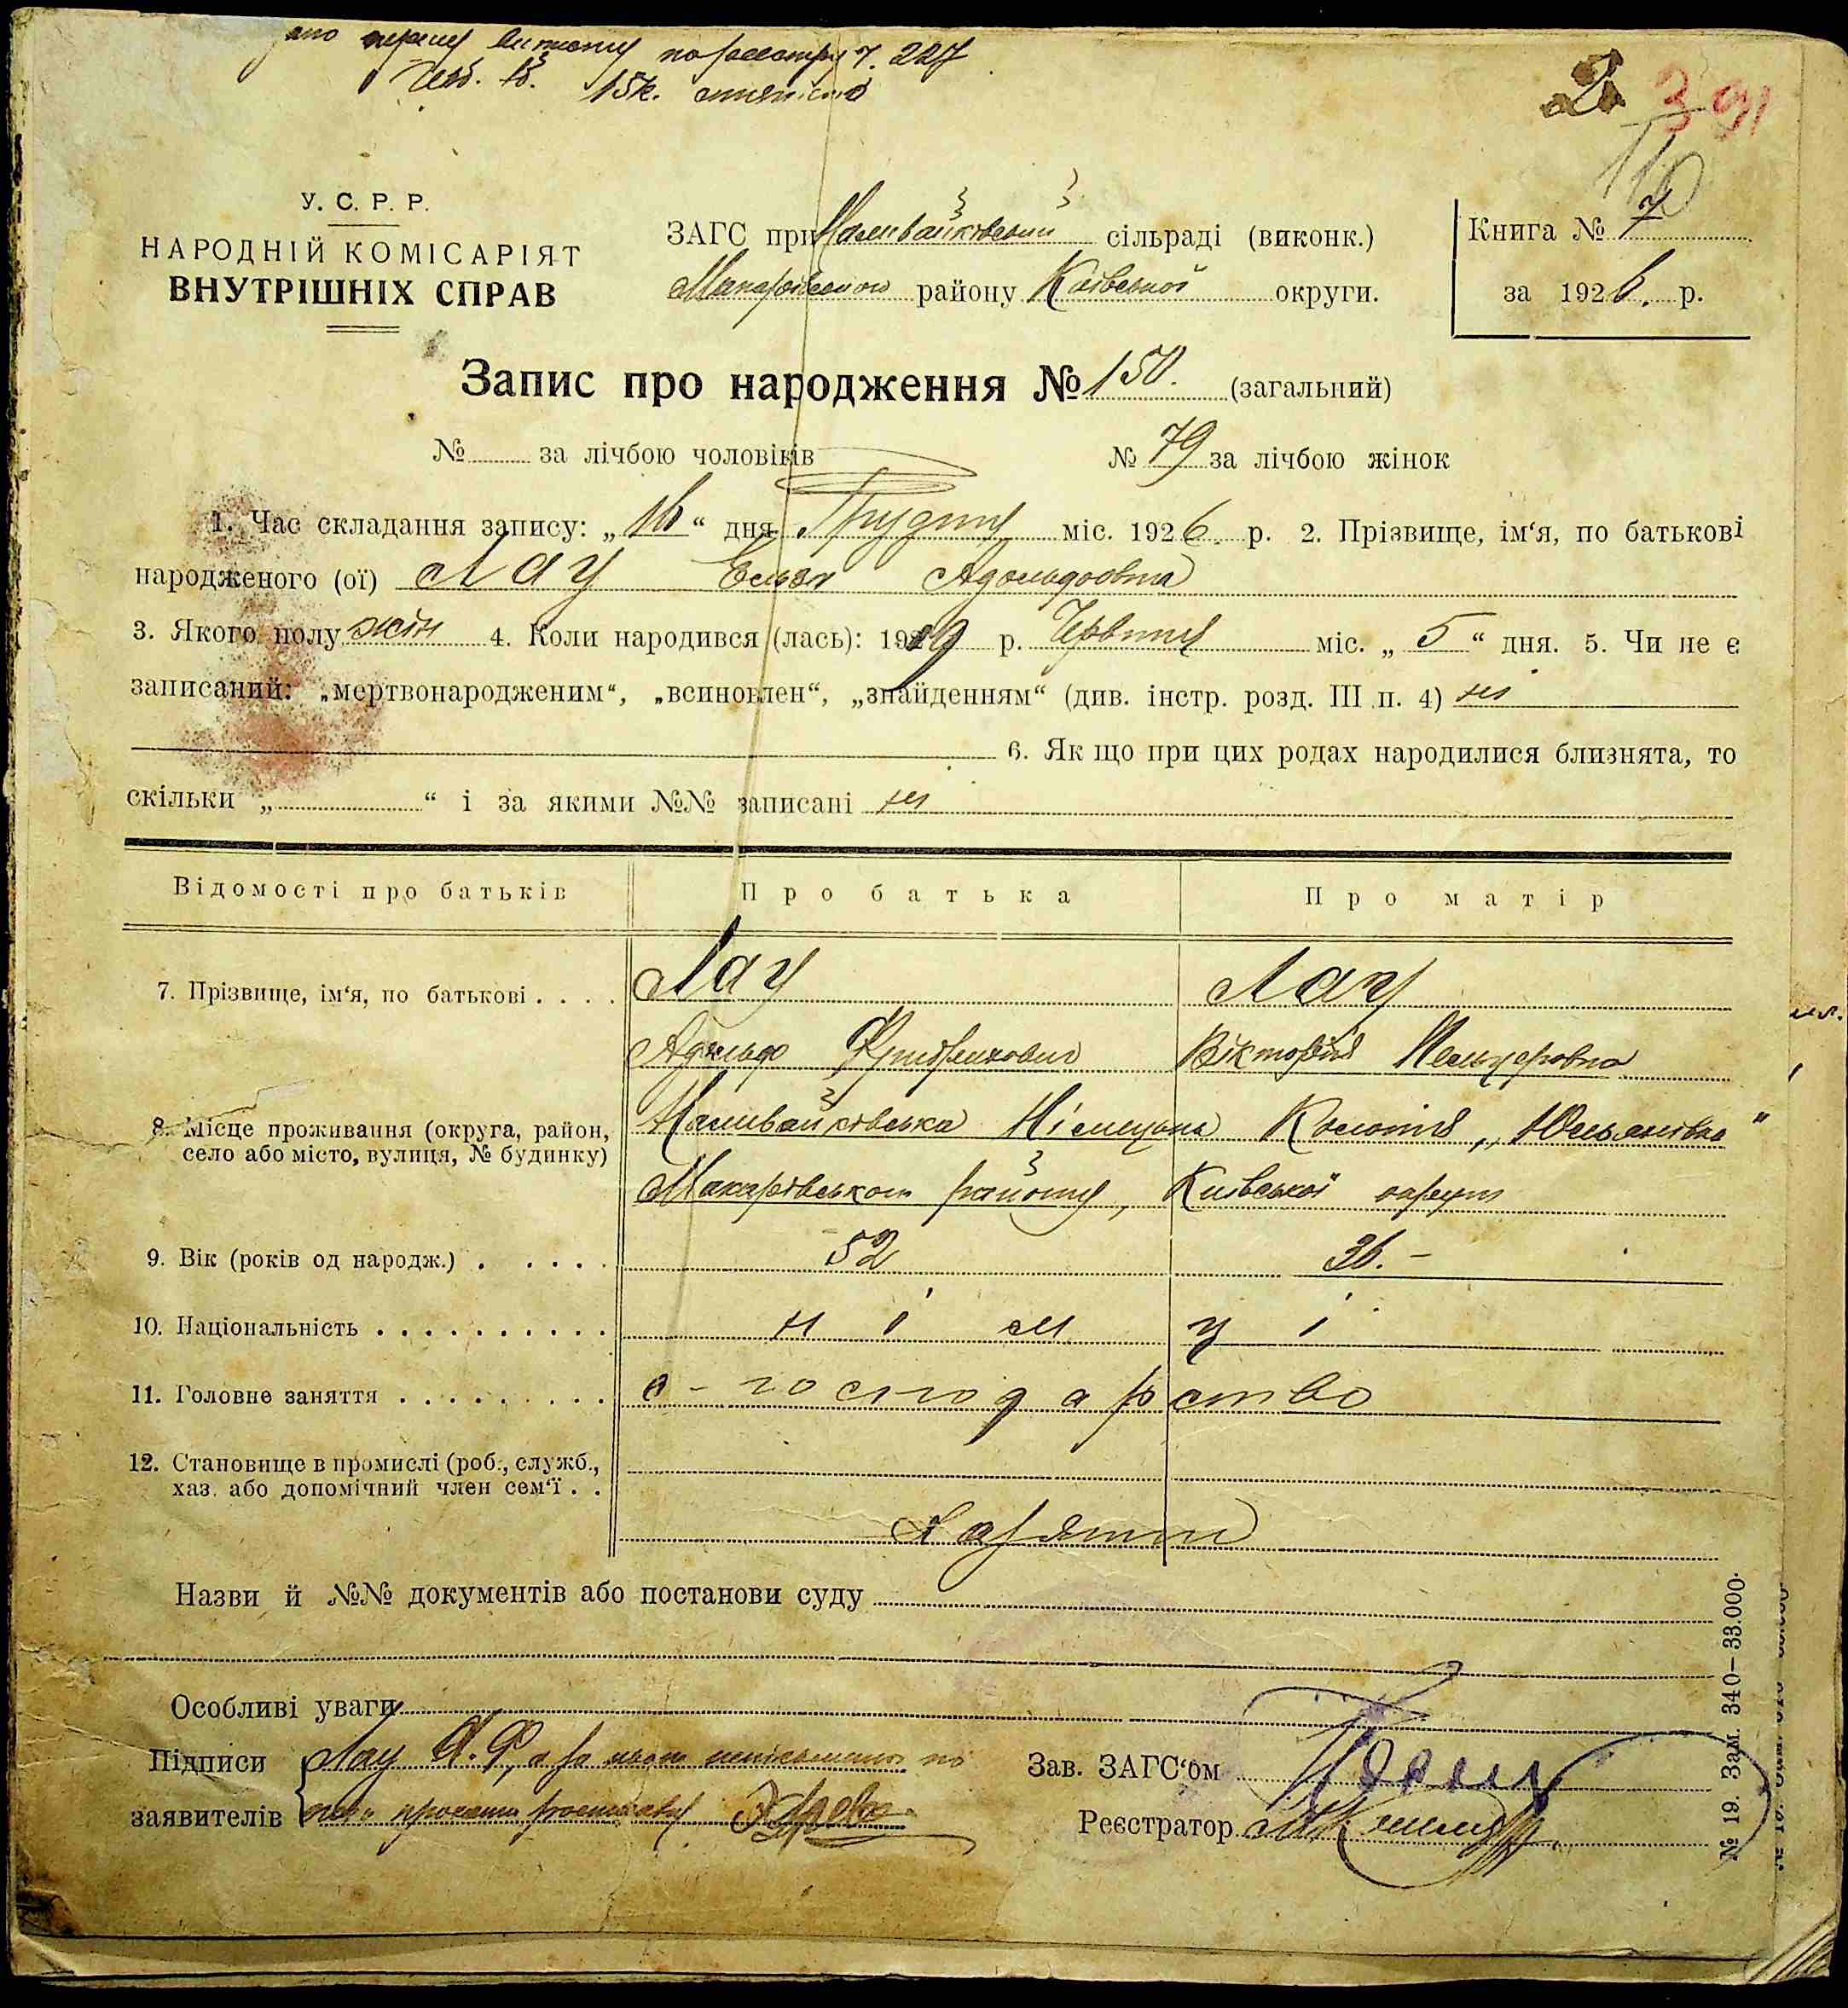 2
391
110
У. С. Р. Р.
НАРОДНІЙ КОМІСАРІЯТ
ВНУТРІШНІХ СПРАВ
ЗАГС при Наливайківській сільраді (виконк.)
Макарівського району Київської округи.
Книга № 7
за 1926. р.
Запис про народження № 150. (загальний)
№ за лічбою чоловіків № 79 за лічбою жінок
1. Час складання запису: „16“ дня Грудня міс. 1926. р. 2. Прізвище, ім‘я, по батькові
народженого (ої) Лау Ельза Адольфовна
3. Якого полу жін 4. Коли народився (лась): 1919 р. Червня міс. „5“ дня. 5. Чи не є
записаний: „мертвонародженим“, „всиновлен“, „знайденням“ (див. інстр. розд. III п. 4) ні
6. Як що при цих родах народилися близнята, то
скільки „ “ і за якими №№ записані ні
Відомості про батьків Про батька Про матір
7. Прізвище, ім‘я, по батькові . . . . Лау Лау
Адольф Фридрихович Вікторія
8. Місце проживання (округа, район,
село або місто, вулиця, № будинку)
Наливайківська Німецька Колонія „Юльянівка“
Макарівського району, Київської округи
9. Вік (років од народж.) . . . . . 52 36. –
10. Національність . . . . . . . . . . німці
11. Головне заняття . . . . . . . . . с-господарство
12. Становище в промислі (роб., служб.,
хаз. або допомічний член сем‘ї . .
Назви й №№ документів або постанови суду
Особливі уваги
Підписи
заявителів
Лау А. Ф, а за його неписьменного по
його просьби росписався
Зав. ЗАГС‘ом
Реєстратор
№ 19. Зам. 340–33.000.